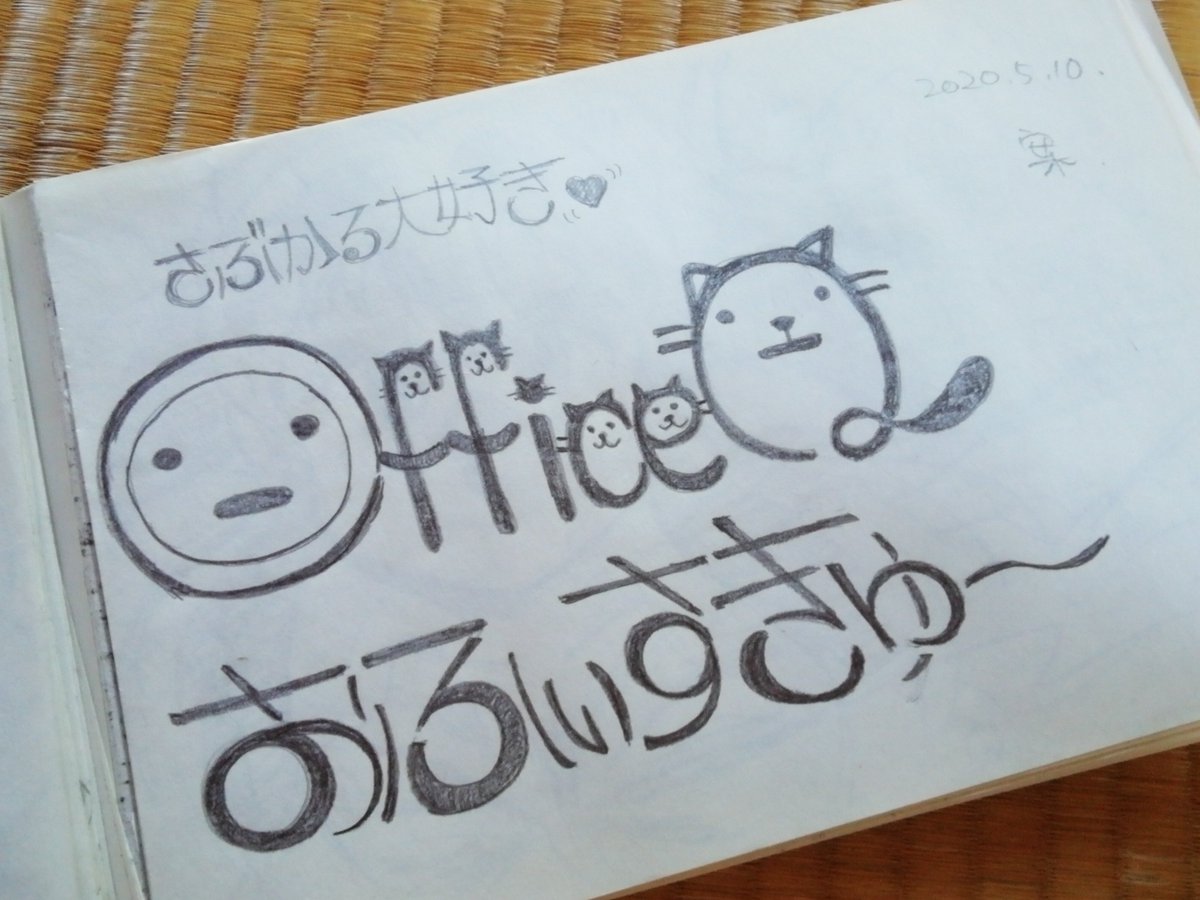 2020.5.10.
さぶかる大好き♥
OfficeQ
おふぃすきゅ〜